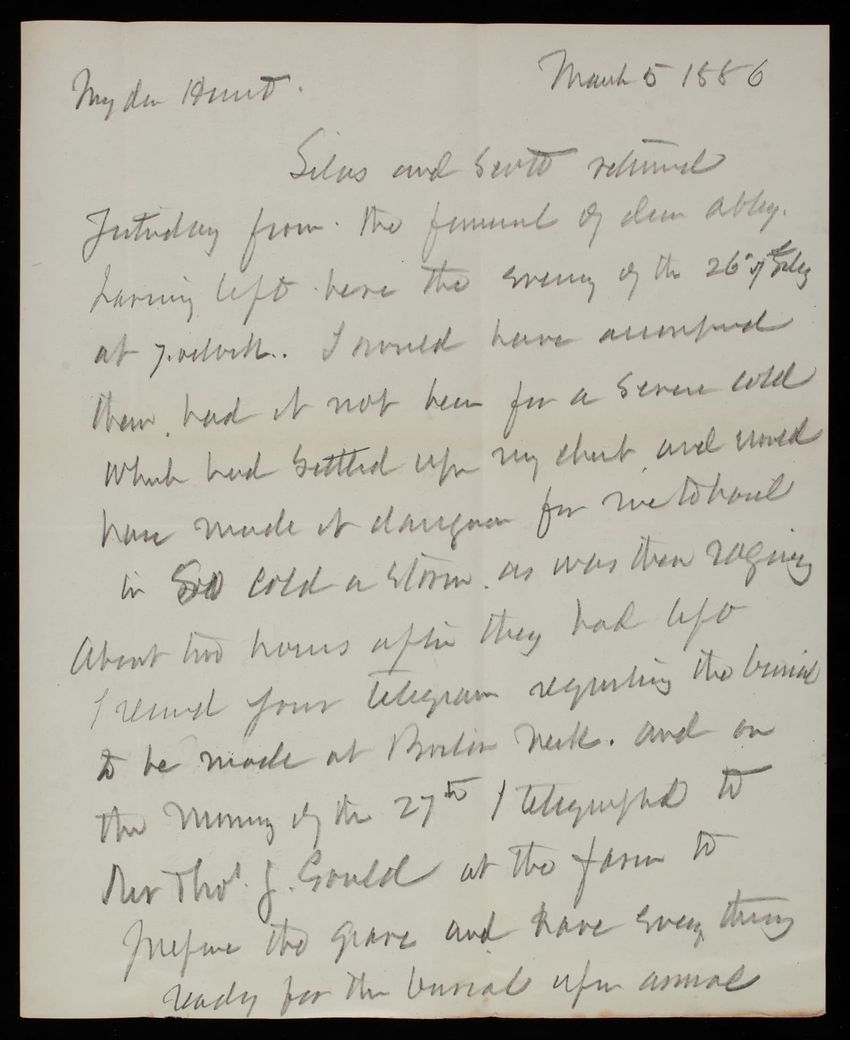 March 5 1886
My dear Hunt.
Silas and Scott returned
Yesterday from the funeral of dear Abby.
having left here the evening of the 26th of Feby
at 7. oclock. I would have accompanied
them, had it not been for a severe cold
which had settled upon my chest and would
have made it dangerous for me to travel
in so cold a storm. as was then raging
About two hours after they had left
I received your telegram requesting the burial
to be made at Boston Neck. and on
the morning of the 27th I telegraphed to
Rev Thos. J. Gould at the farm to
prepare the grave and have every thing
ready for the burial upon arrival